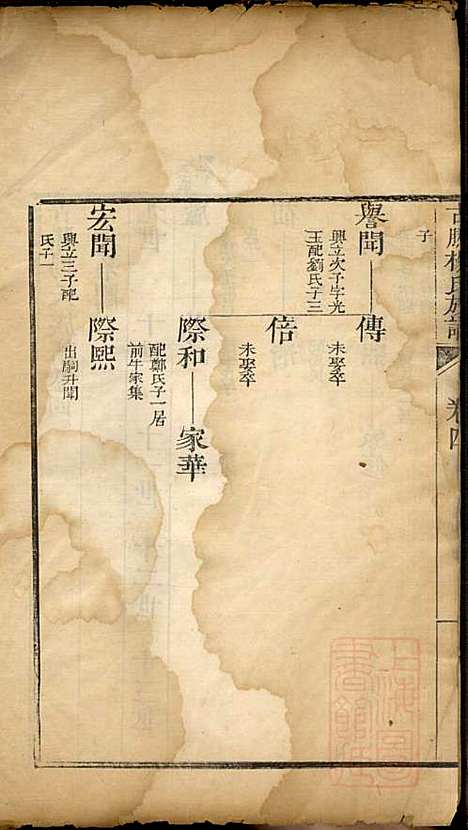 古勝楊氏族譜
卷四
子
譽聞
興立次子字光
玉配劉氏子三
傳
未娶卒
倍
未娶卒
際和
配鄭氏子一居
前牛家集
家華
宏聞
興立三子配
氏子一
際熙
出嗣升聞